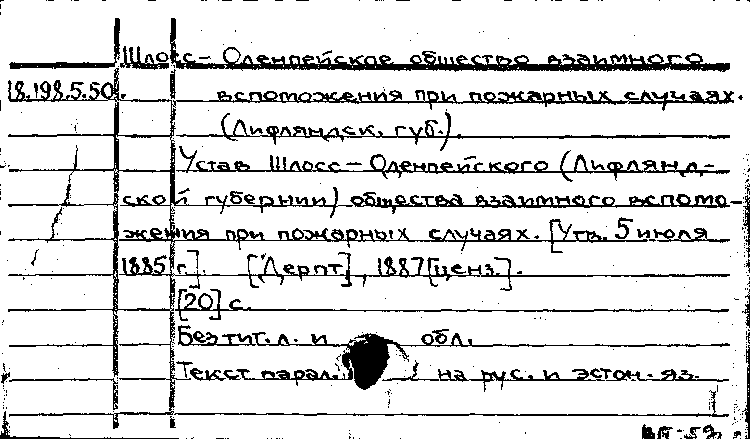 Шлосс-Оденпейское общество взаимного
18.198.5.50. вспоможения при пожарных случаях.
(Лифляндск. губ.).
Устав Шлосс-Оденпейского (Лифлянд-
ской губернии) общества взаимного вспомо-
жения при пожарных случаях. [Утв. 5 июля
1885 г.]. [Дерпт], 1887 [ценз.].
[20] с.
Без тит. л. и обл.
Текст парал. на рус. и эстон. яз.